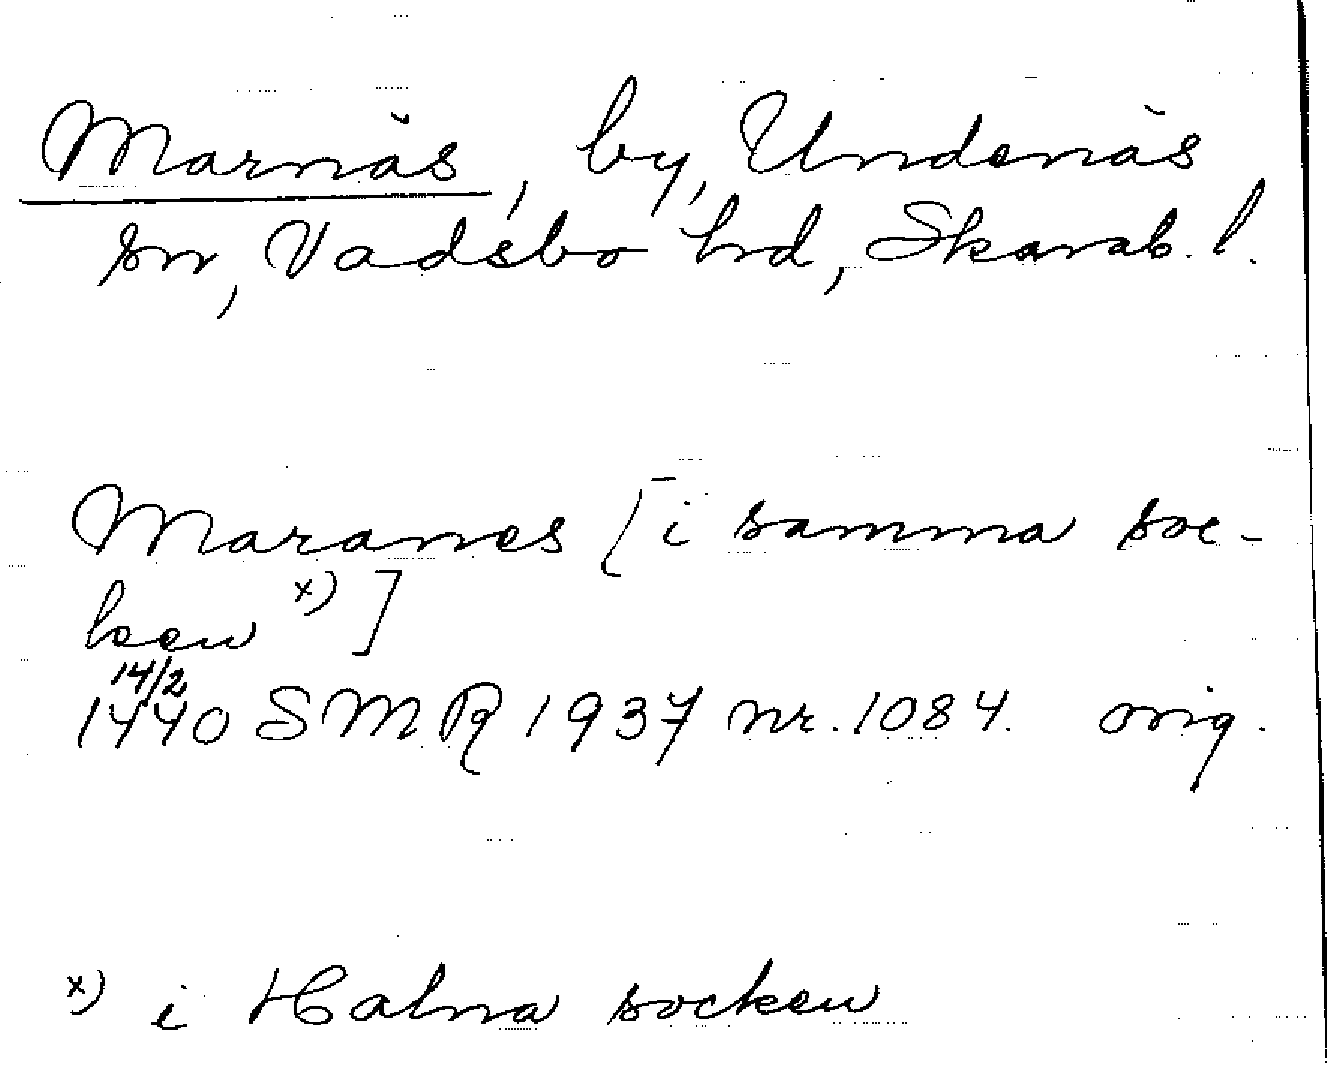 Marnäs, by, Undenäs
sn, Vadsbo hrd, Skarab. l.
Maranes [i samma soc-
ken x)]
14/2
1440 SMR 1937 nr. 1084. orig.
x) i Halna socken